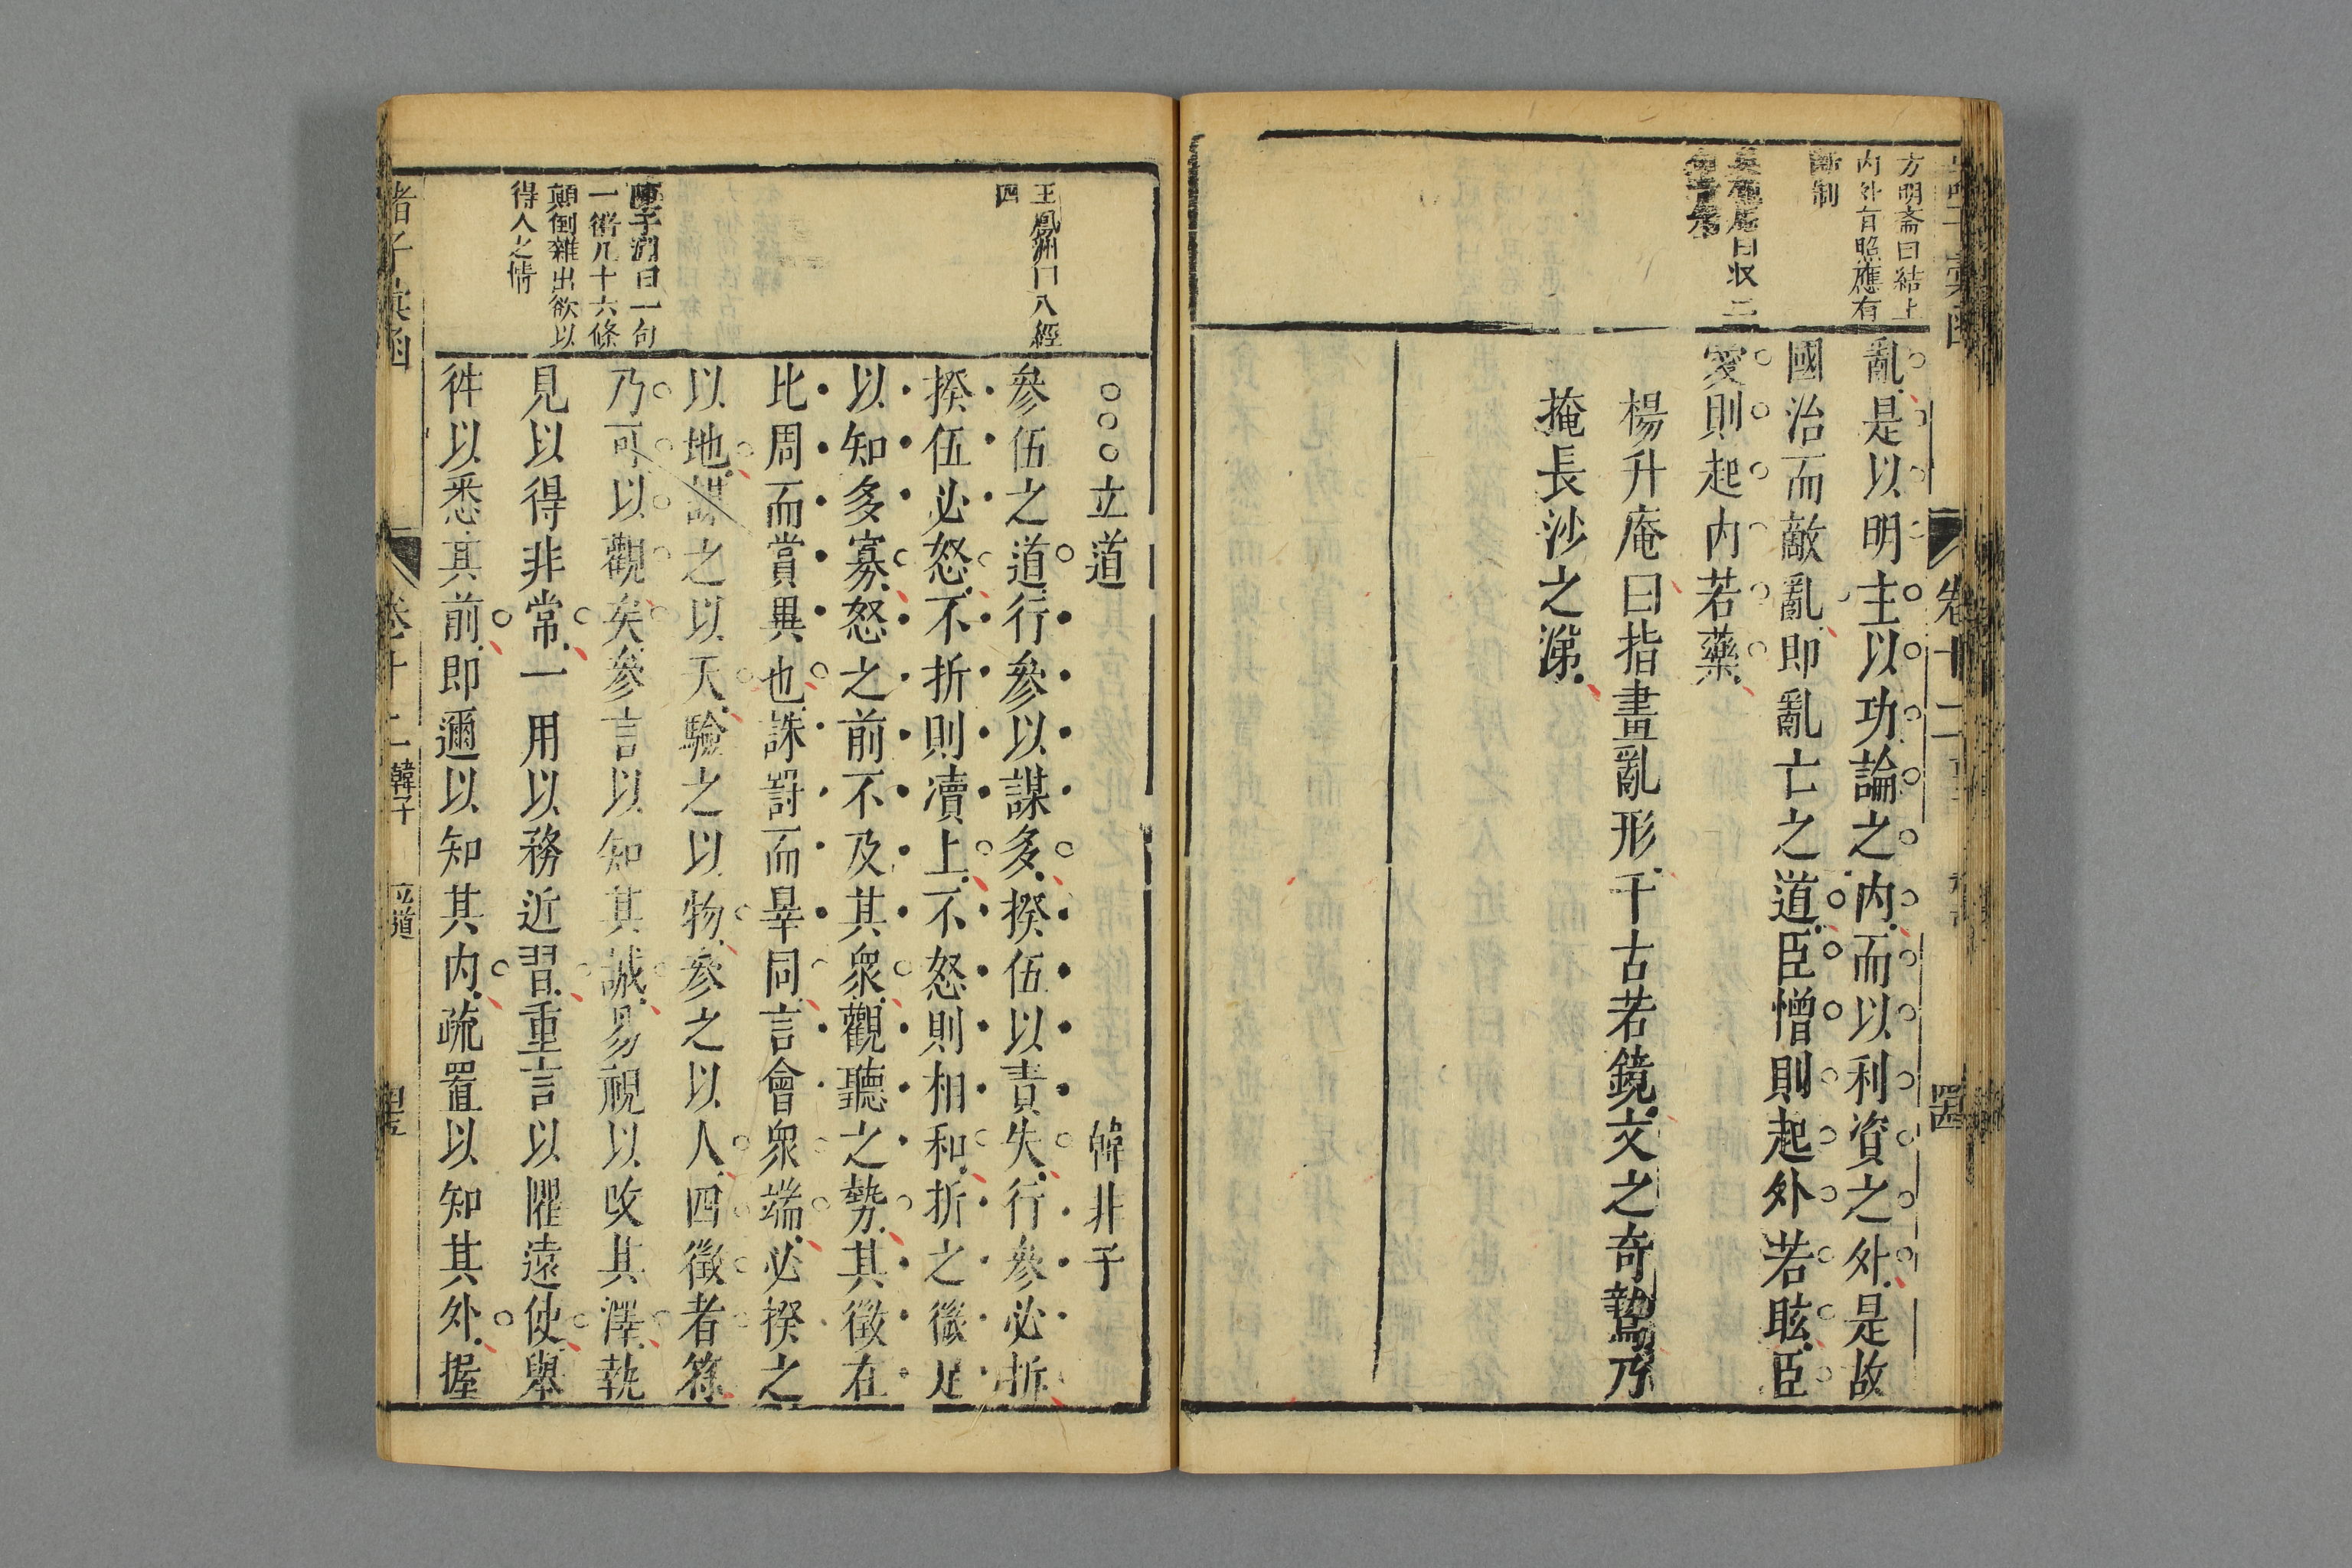 方明齋曰結上
内外有照應有
斷制
曰収二
亂是以明主以功論之内而以利資之外是故
國治而敵亂即亂亡之道臣憎則起外若眩臣
愛則起内若藥
楊升庵曰指畫亂形千古若鏡文之奇鷙乃
掩長沙之涕
卷十二
王鳳洲曰八經
四
陳子淵曰一句
一術凡十六條
顛倒雜出欲以
得人之情
○○○立道 韓非子
參伍之道行參以謀多揆伍以責失行參必折
揆伍必怒不折則瀆上不怒則相和折之徵足
以知多寡怒之前不及其衆觀聽之勢其徵在
比周而賞異也誅罸而辠同言會衆端必揆之
以地謀之以天驗之以物參之以人四徵者符
乃可以觀矣參言以知其誠易視以攺其澤執
見以得非常一用以務近習重言以懼遠使舉
徃以悉其前即邇以知其内疏置以知其外握
諸子彙函
卷十二 韓子 立道